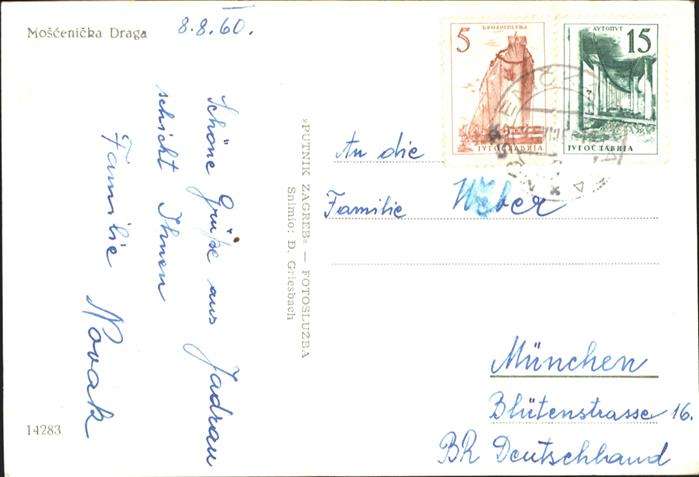 Mošćenička Draga
8.8.60.
Schöne Grüße aus Jadran
schickt Ihnen
Familie Novak
»PUTNIK ZAGREB« — FOTOSLUŽBA
Snimio: Đ. Griesbach
5
ЈУГОСЛАВИЈА
АУТОПУТ
15
ЈУГОСЛАВИЈА
An die
Familie Weber
München
Blütenstrasse 16.
BR Deutschland
14283